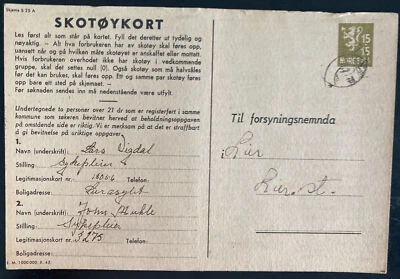 Skjema S 25 A
SKOTØYKORT
Les først alt som står på kortet. Fyll det deretter ut tydelig og
nøyaktig. – Alt hva forbrukeren har av skotøy skal føres opp,
uansett når og på hvilken måte skotøyet er anskaffet eller mottatt.
Hvis forbrukeren overhodet ikke har skotøy i vedkommende
gruppe, skal det settes null (0). Også skotøy som må halvsåles
før det kan brukes, skal føres opp. Ett og samme par skotøy føres
opp bare ett sted på skjemaet.
Før søknaden sendes inn må nedenstående være utfylt.
Undertegnede to personer over 21 år som er registerført i samme
kommune som søkeren bevitner herved at beholdningsoppgaven
på omstående side er riktig. Vi er merksam på at det er straffbart
å gi bevitnelse på uriktige oppgaver.
1.
Navn (underskrift): Lars
Stilling: Sykepleier
Legitimasjonskort nr.: Telefon:
Boligadresse: Lierasyl
2.
Navn (underskrift): John
Stilling: Sykepleier
Legitimasjonskort nr.: 3275 Telefon:
Boligadresse:
E. M. 1 000 000. 9. 43.
15 15
NOREG
Til forsyningsnemnda
i Lier
Lier st.